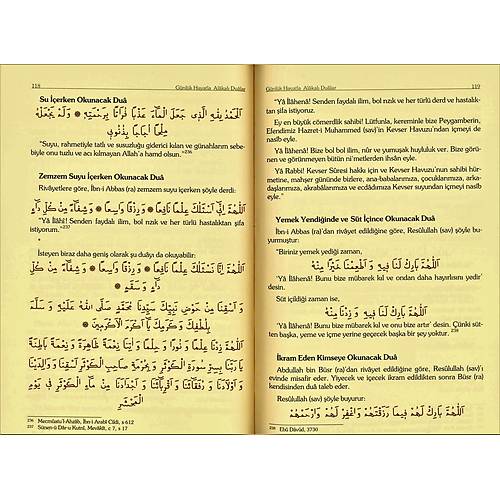 118 Günlük Hayatla Alâkalı Dualar
Su İçerken Okunacak Duâ
اَلْحَمْدُ لِلّٰهِ الَّذِي جَعَلَ الْمَاءَ عَذْبًا فُرَاتًا بِرَحْمَتِهِ وَلَمْ يَجْعَلْهُ
مِلْحًا اُجَاجًا بِذُنُوبِي
"Suyu, rahmetiyle tatlı ve susuzluğu giderici kılan ve günahlarım sebe-
biyle onu tuzlu ve acı kılmayan Allah'a hamd olsun."236
Zemzem Suyu İçerken Okunacak Duâ
Rivâyetlere göre, İbn-i Abbas (ra) zemzem suyu içerken şöyle derdi:
اَللّٰهُمَّ اِنِّي اَسْئَلُكَ عِلْمًا نَافِعًا وَرِزْقًا وَاسِعًا وَشِفَاءً مِنْ كُلِّ دَاءٍ
"Yâ İlâhenâ! Senden faydalı ilim, bol rızık ve her türlü hastalıktan şifa
istiyorum."237
İsteyen biraz daha geniş olarak şu duâyı da okuyabilir:
اَللّٰهُمَّ اِنَّا نَسْئَلُكَ عِلْمًا نَافِعًا وَرِزْقًا وَاسِعًا وَشِفَاءً مِنْ كُلِّ
دَاءٍ وَسَقَمٍ
وَاَسْقِنَا مِنْ حَوْضِ نَبِيِّكَ سَيِّدِنَا مُحَمَّدٍ صَلَّى اللهُ عَلَيْهِ وَسَلَّمَ
بِلُطْفِكَ وَكَرَمِكَ يَا اَكْرَمَ الْاَكْرَمِينَ
اَللّٰهُمَّ زِدْنَا عِلْمًا وَنُورًا وَحِلْمًا وَاٰتِنَا نِعْمَةً ظَاهِرَةً وَنِعْمَةً بَاطِنَةً
يَا رَبَّنَا بِسِرِّ سُورَةِ الْكَوْثَرِ وَبِحُرْمَةِ صَاحِبِ الْكَوْثَرِ اَسْقِنَا وَوَالِدِينَا
وَاَوْلَادَنَا وَرُفَقَائَنَا وَاَقَارِبَنَا وَاَجْدَادَنَا مِنْ مَاءِ الْكَوْثَرِ فِي يَوْمِ
الْمَحْشَرِ
236 Mecmûatu'l-Ahzâb, İbn-i Arabî Cildi, s 612
237 Sünen-ü Dâr-u Kutnî, Mevâkît, c 7, s 17
Günlük Hayatla Alâkalı Dualar 119
"Yâ İlâhenâ! Senden faydalı ilim, bol rızık ve her türlü derd ve hastalık-
tan şifa istiyoruz.
Ey en büyük cömerdlik sahibi! Lütfunla, kereminle bize Peygamberin,
Efendimiz Hazret-i Muhammed (sav)'in Kevser Havuzu'ndan içmeyi de
nasib eyle.
Yâ İlâhenâ! Bize bol ilim, nûr ve yumuşak huyluluk ver. Bize görünen
ve görünmeyen bütün ni'metlerden ihsân eyle.
Yâ Rabbi! Kevser Sûresi hakkı için ve Kevser Havuzu'nun sahibi hür-
metine, mahşer gününde bizlere, ana-babalarımıza, çocuklarımıza, arka-
daşlarımıza, akrabâlarımıza ve ecdâdımıza Kevser suyundan içmeyi nasib
eyle."
Yemek Yendiğinde ve Süt İçince Okunacak Duâ
İbn-i Abbas (ra)'dan rivâyet edildiğine göre, Resûlullah (sav) şöyle bu-
yurmuştur:
"Biriniz yemek yediği zaman,
اَللّٰهُمَّ بَارِكْ لَنَا فِيهِ وَاَطْعِمْنَا خَيْرًا مِنْهُ
"Yâ İlâhenâ! Bunu bize mübarek kıl ve ondan daha hayırlısını yedir'
desin.
Süt içildiği zaman ise,
اَللّٰهُمَّ بَارِكْ لَنَا فِيهِ وَزِدْنَا مِنْهُ
'Yâ İlâhenâ! Bunu bize mübarek kıl ve onu bize artır' desin. Çünki süt-
ten başka, yeme ve içme yerine geçecek başka bir şey yoktur." 238
İkram Eden Kimseye Okunacak Duâ
Abdullah bin Büsr (ra)'dan rivâyet edildiğine göre, Resûlullah (sav)'i
evinde misafir eder. Yiyecek ve içecek ikram edildikten sonra Büsr (ra)
kendisinden duâ taleb eder.
Resûlullah (sav) şöyle buyurur:
اَللّٰهُمَّ بَارِكْ لَهُمْ فِيمَا رَزَقْتَهُمْ وَاغْفِرْ لَهُمْ وَارْحَمْهُمْ
238 Ebû Dâvûd, 3730